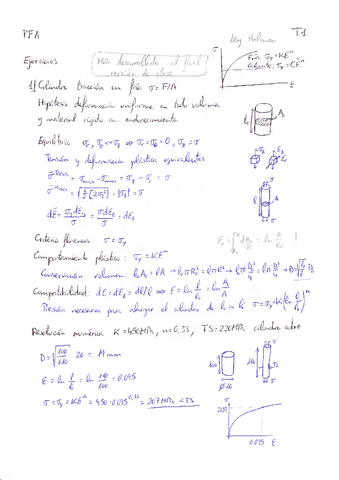 PFA
T1
Ley Holloman
Ejercicios
Más desarrollado al final
versión de clase
Frío: σy = KEⁿ
Caliente: σy = CĖᵐ
1) Cilindro tracción en frío σ = F/A
Hipótesis deformación uniforme en todo volumen
y material rígido con endurecimiento
Equilibrio σr, σθ << σz ⇒ σr = σθ = 0, σz = σ
Tensión y deformación plástica equivalentes
Criterio fluencia σ̄ = σy
Comportamiento plástico: σy = KEⁿ
Conservación volumen l₀A₀ = lA → l₀πR₀² = lπR² → l₀πD₀²/4 = lπD²/4 → D = √(l₀/l) D₀
Compatibilidad: dE = dEz = dl/l ⇒ E = ln l/l₀ = ln A₀/A
Presión necesaria para alargar el cilindro de l₀ a l: σ = σy = K(ln l/l₀)ⁿ
Resolución numérica K = 450MPa, n = 0.33, TS = 220MPa cilindro cobre
D = √(100/110) 20 = 19mm
E = ln l/l₀ = ln 110/100 = 0.095
σ = σy = KEⁿ = 450·0.095^0.33 = 207MPa < TS
100
Ø 20
110
D
σ
207
0.095
E